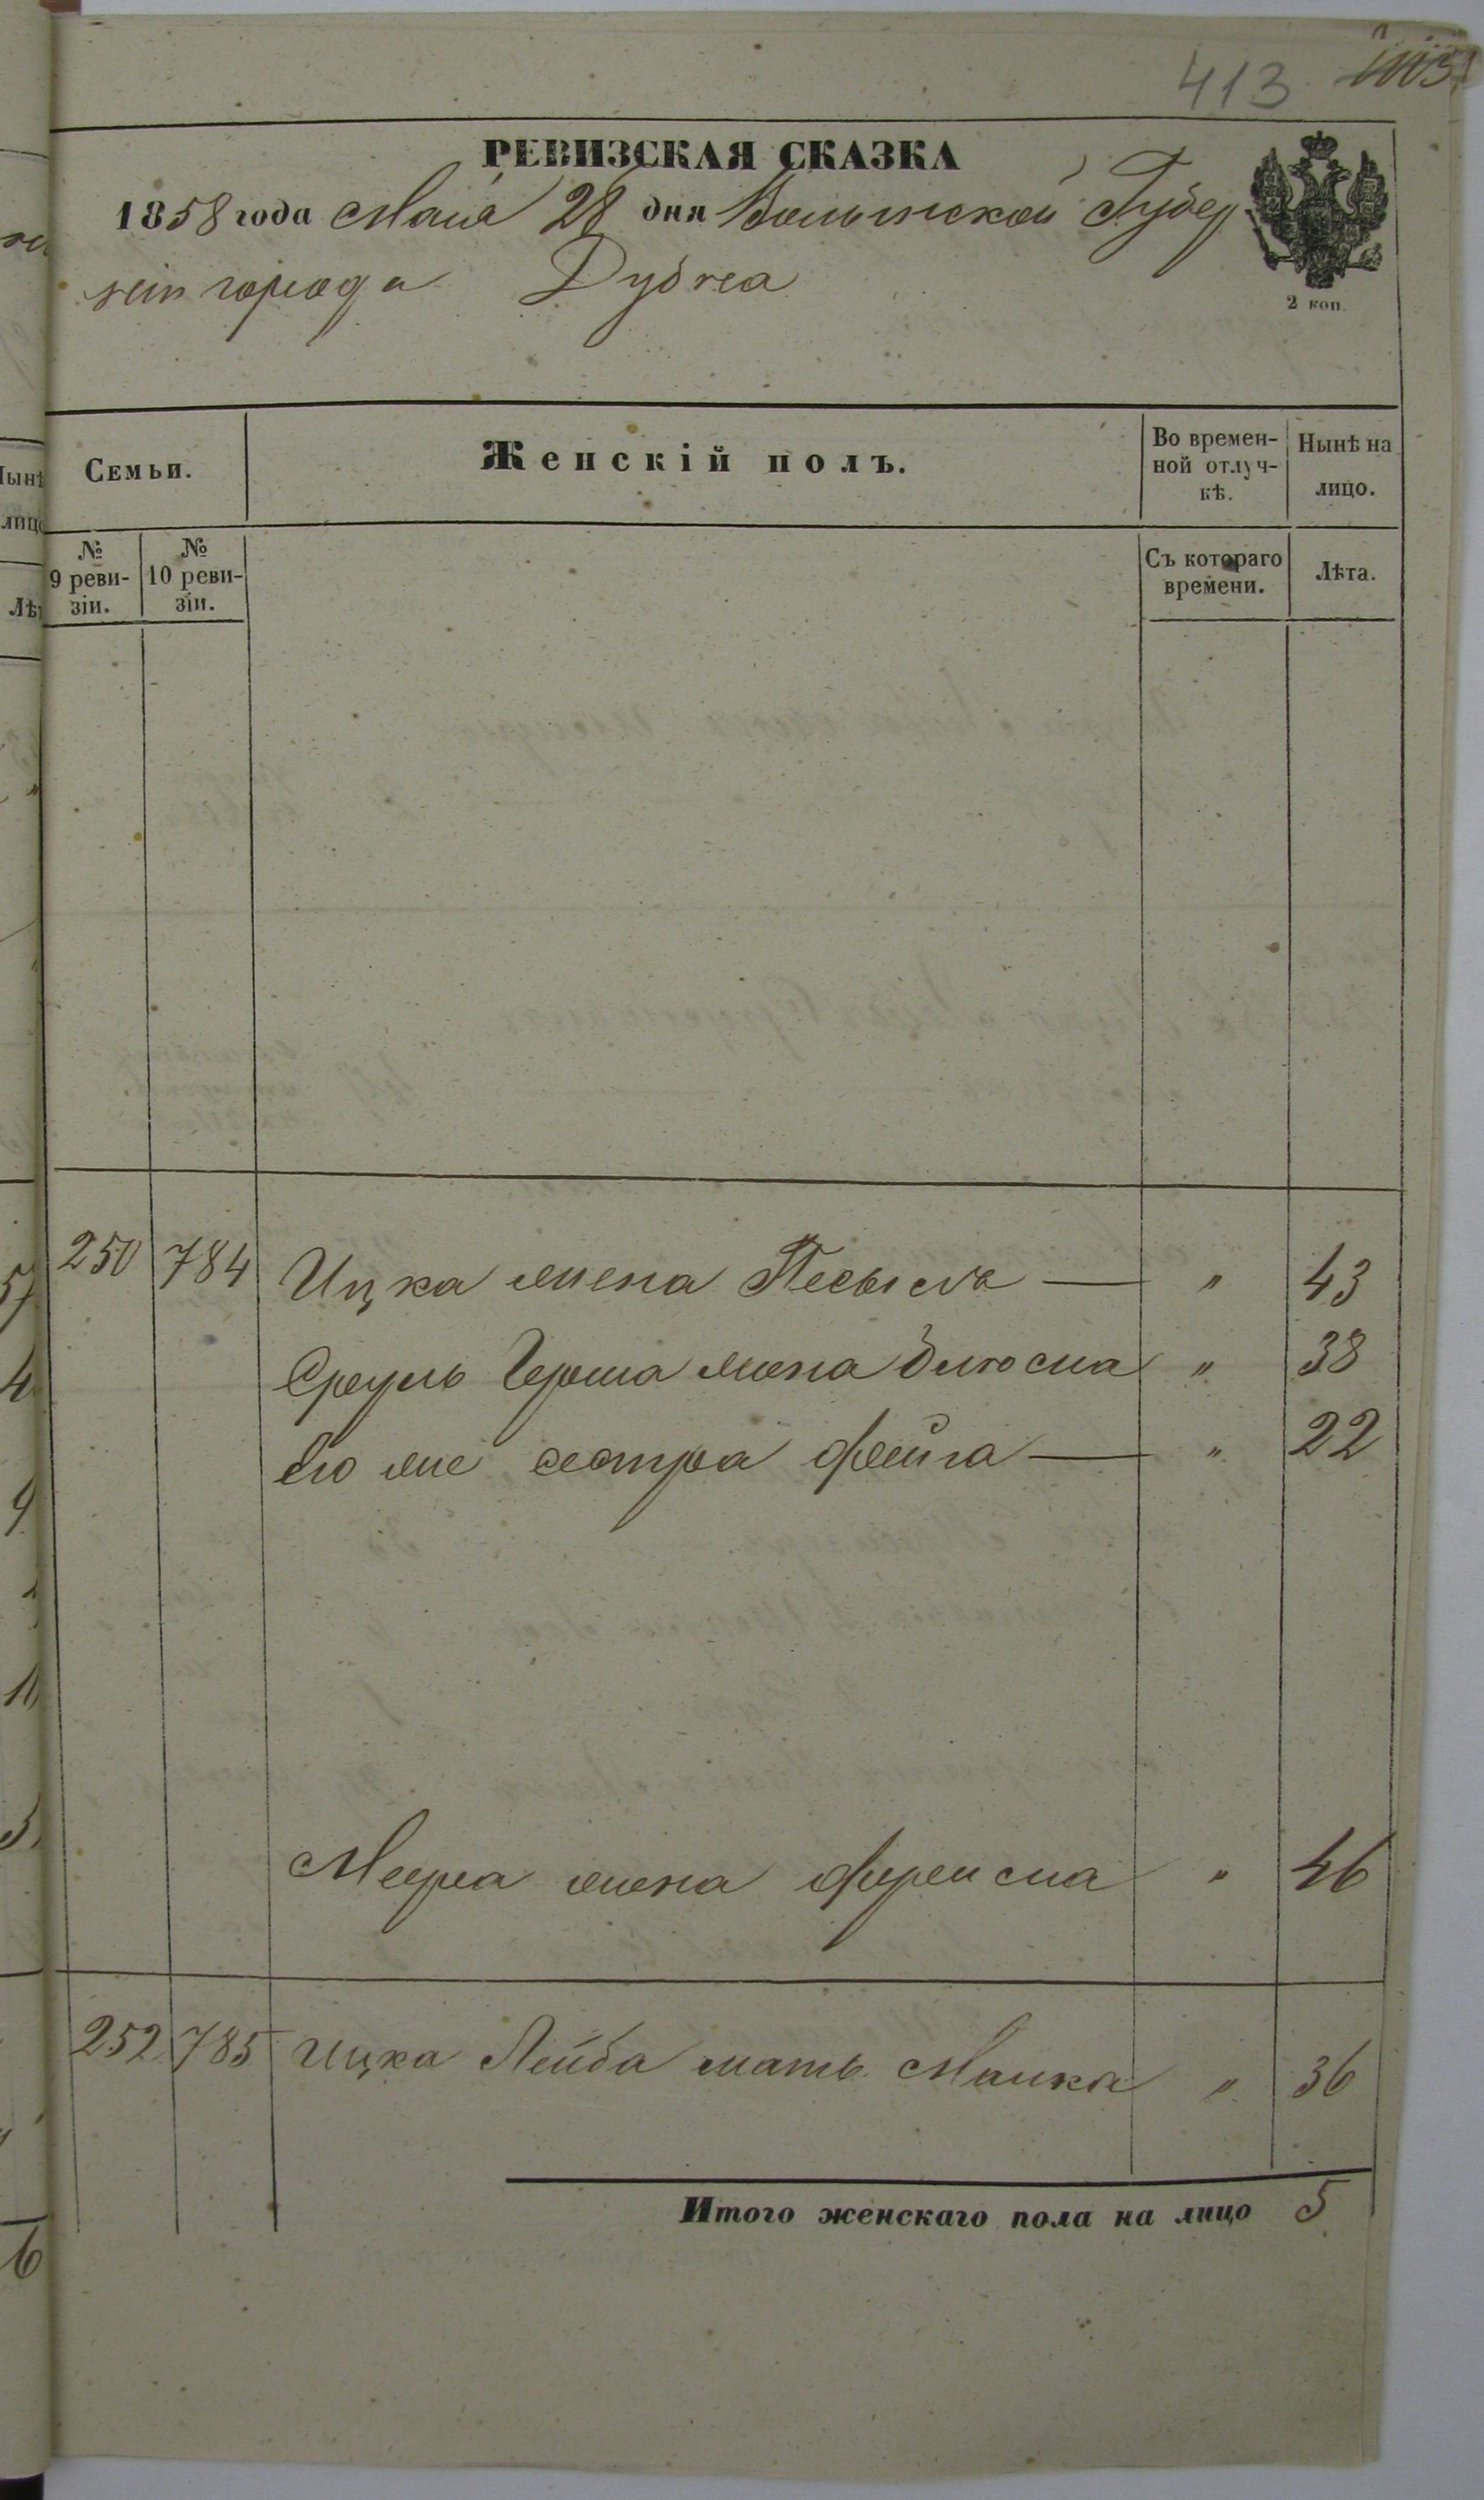 413
РЕВИЗСКАЯ СКАЗКА
1858 года Мая 28 дня Волынской Губер
нiи города Дубна
2 коп.
Семьи.
Женскiй полъ.
Во времен-
ной отлуч-
кѣ.
Нынѣ на
лицо.
№
9 реви-
зiи.
№
10 реви-
зiи.
Съ котораго
времени.
Лѣта.
250 784 Ицка жена Песысъ — " 43
Сруль Герша жена Блюма " 38
Его же сестра Фейга — " 22
Меера жена Фрейма " 46
252 785 Ицка Лейба мать Малка " 36
Итого женскаго пола на лицо 5